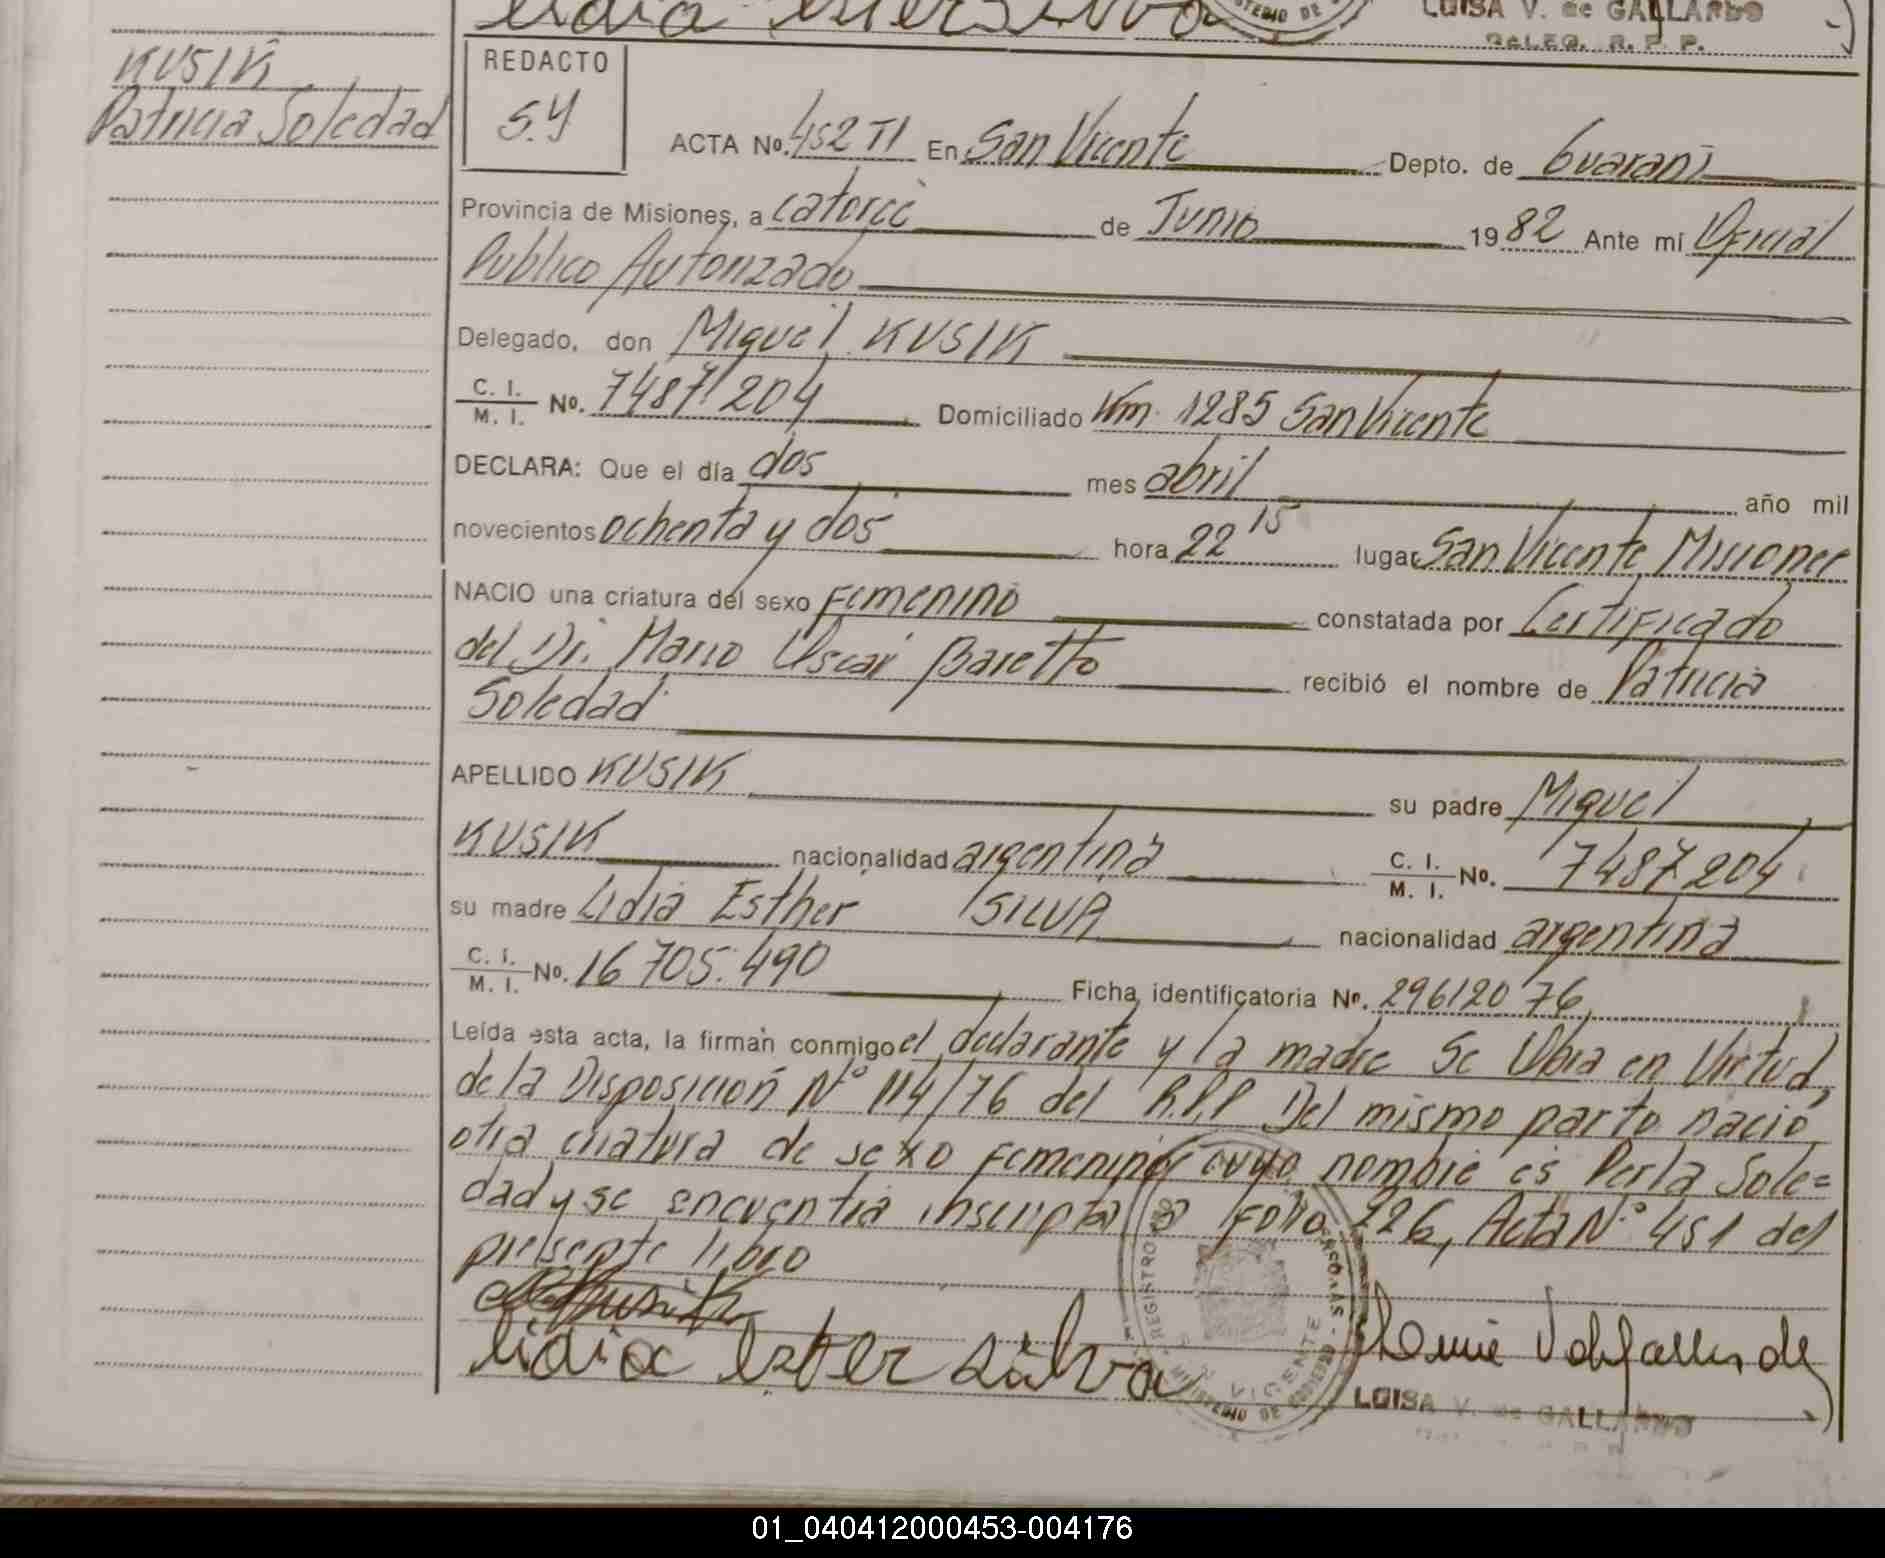 lidia ester silva
LUISA V. de GALLARDO
DELEG. R. P. P.
KUSIK
Patricia Soledad
REDACTO
S.Y
ACTA No. 452 TI En San Vicente Depto. de Guaraní
Provincia de Misiones, a catorce de Junio 1982 Ante mí Oficial
Publico Autorizado
Delegado, don Miguel KUSIK
C. I. M. I. No. 7487.204 Domiciliado Km. 1285 San Vicente
DECLARA: Que el día dos mes abril año mil
novecientos ochenta y dos hora 22 15 lugar San Vicente Misiones
NACIO una criatura del sexo Femenino constatada por Certificado
del Dr. Mario Oscar Baretto recibió el nombre de Patricia
Soledad
APELLIDO KUSIK su padre Miguel
KUSIK nacionalidad argentina C. I. M. I. No. 7487.204
su madre Lidia Esther SILVA nacionalidad argentina
C. I. M. I. No. 16.705.490 Ficha identificatoria No. 29612076
Leída esta acta, la firman conmigo el declarante y la madre Se Obra en Virtud
de la Disposición N° 114/76 del R.P.P Del mismo parto nació
otra criatura de sexo femenino cuyo nombre es Perla Sole=
dad y se encuentra inscripta a Folio 226, Acta N° 451 del
presente libro
lidia ester silva
REGISTRO
MINISTERIO DE GOBIERNO
VICENTE
LUISA V. de GALLARDO
01_040412000453-004176